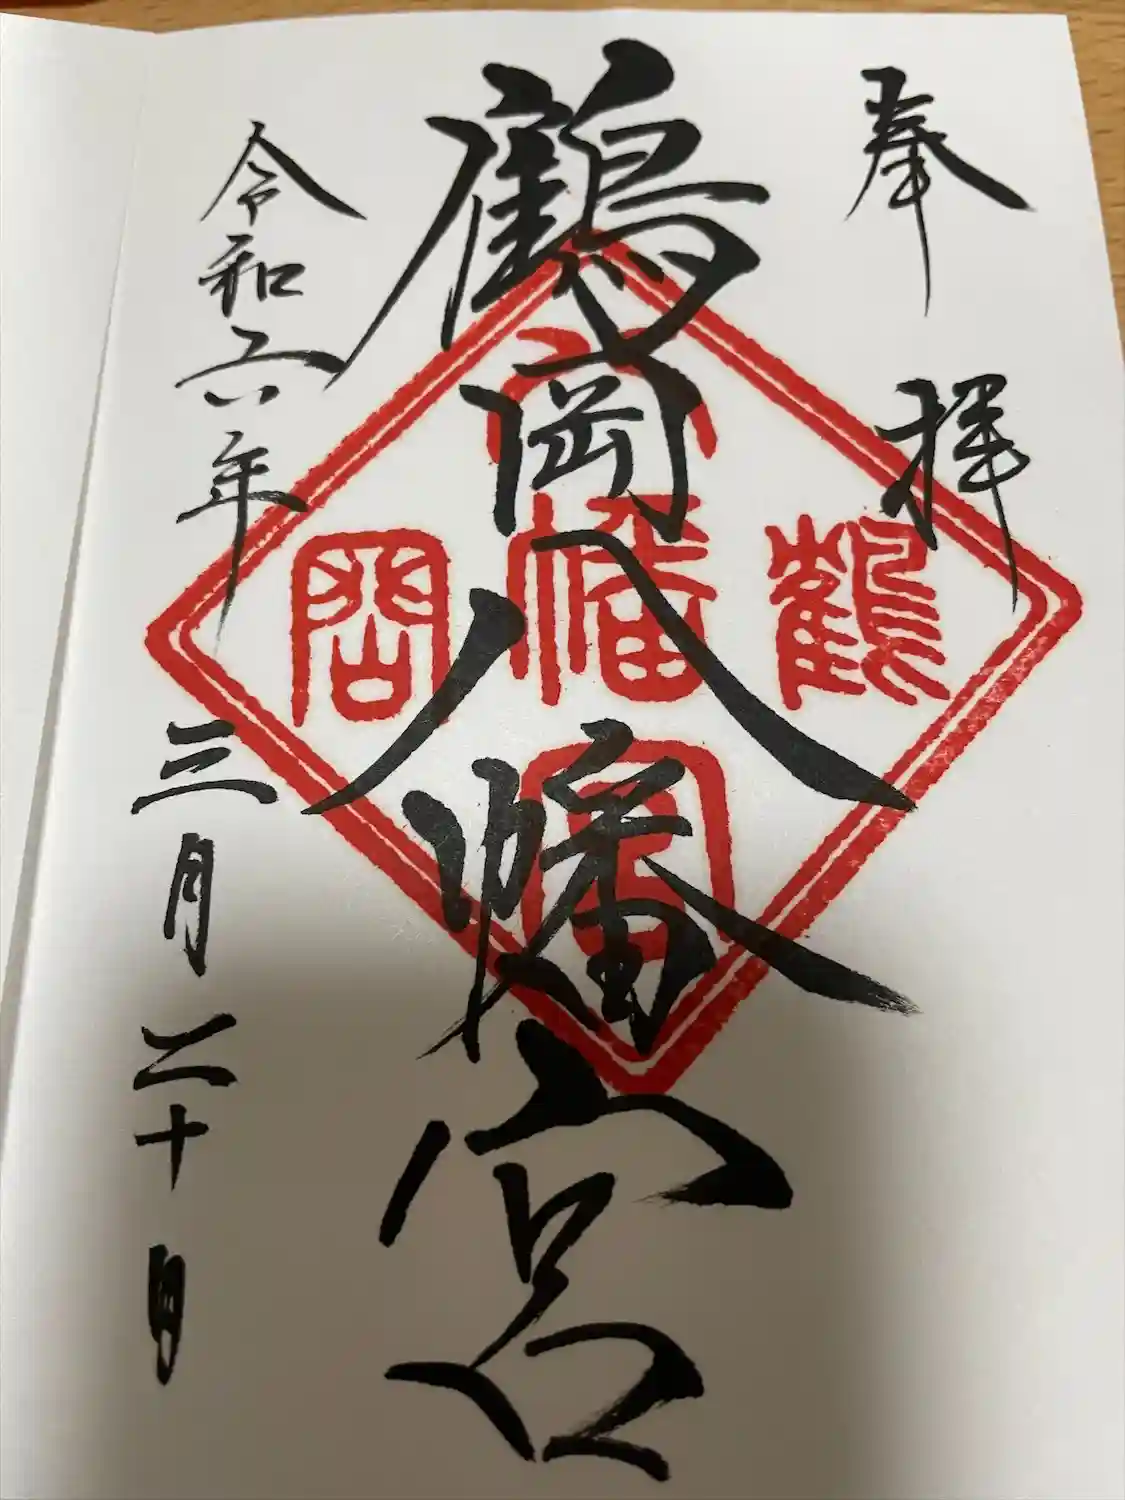 奉拝
鶴岡八幡宮
令和六年三月二十日
鶴
八
幡
宮
岡